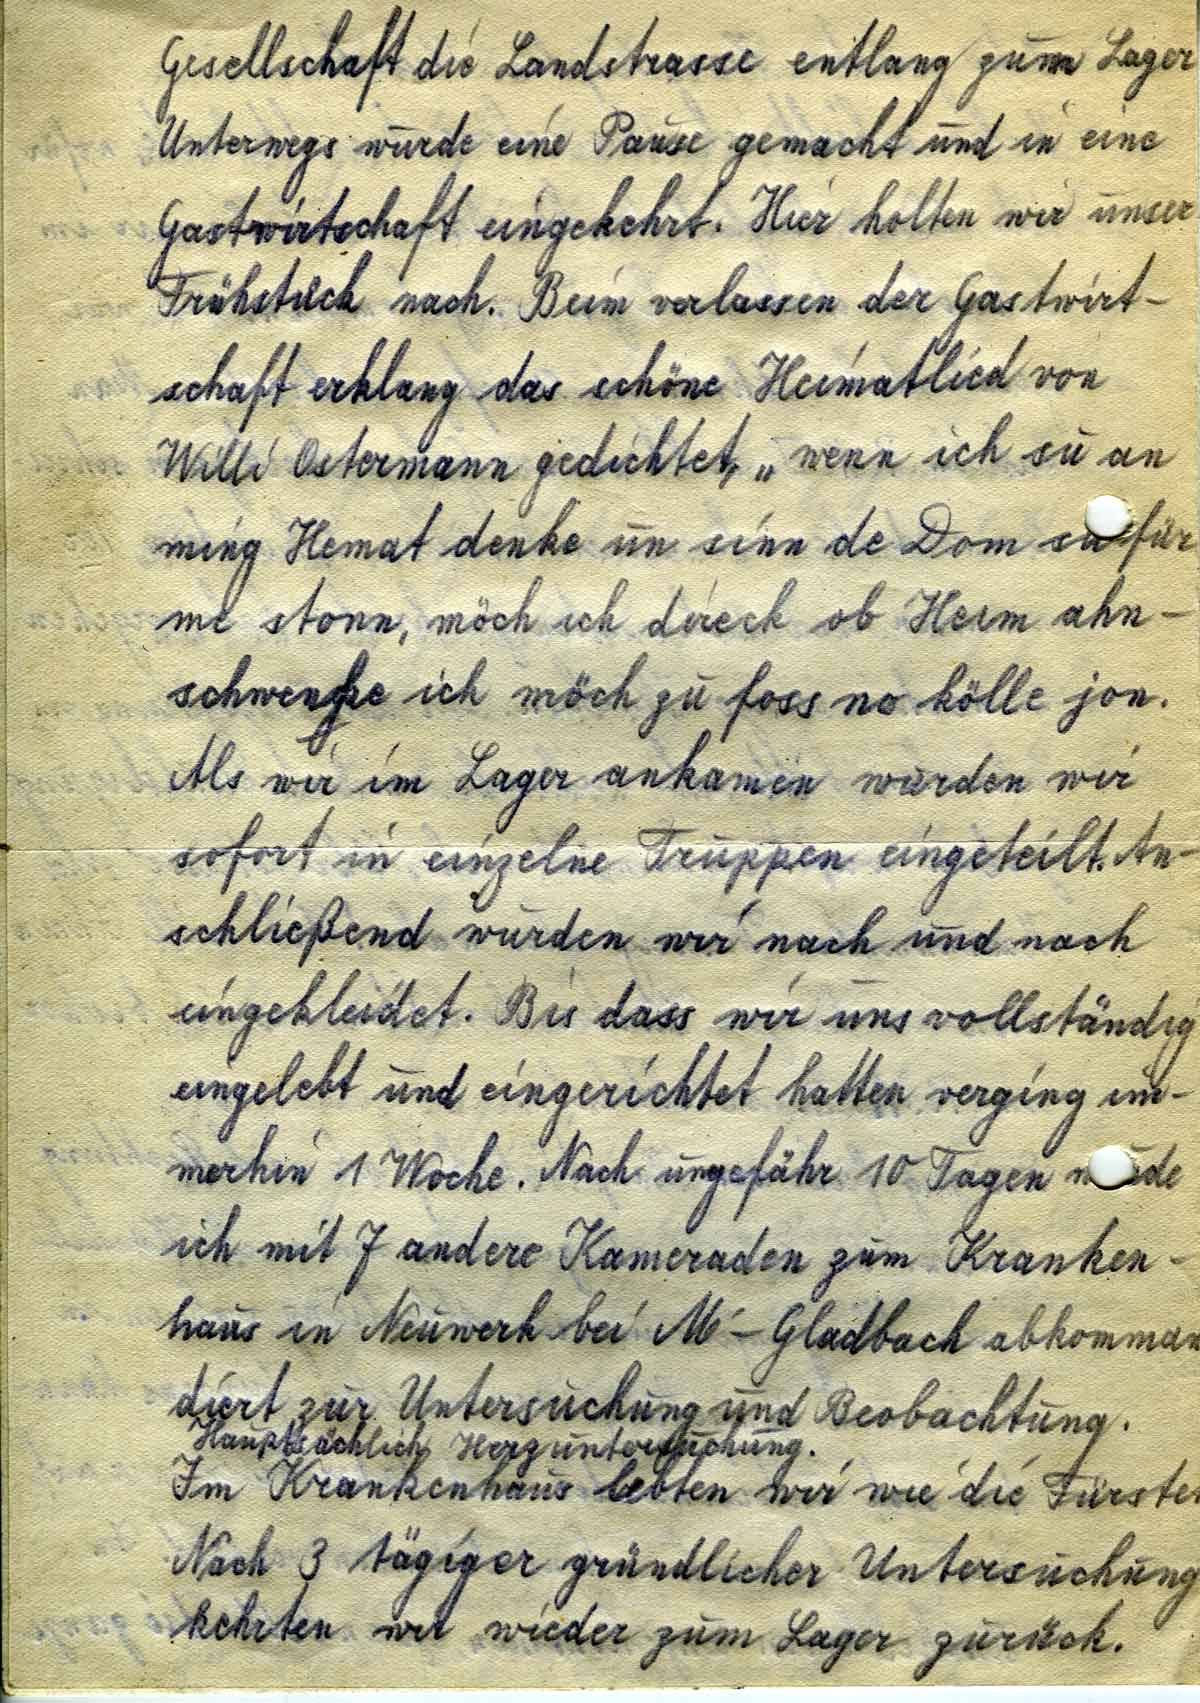 Gesellschaft die Landstrasse entlang zum Lager
Unterwegs wurde eine Pause gemacht und in eine
Gastwirtschaft eingekehrt. Hier holten wir unser
Frühstück nach. Beim verlassen der Gastwirt-
schaft erklang das schöne Heimatlied von
Willi Ostermann gedichtet, „ wenn ich su an
ming Hemat denke un sinn de Dom su für
me stonn, möch ich direck ob Heim ahn-
schwenke ich möch zu foss no kölle jon.
Als wir im Lager ankamen wurden wir
sofort in einzelne Truppen eingeteilt. An-
schließend wurden wir nach und nach
eingekleidet. Bis dass wir uns vollständig
eingelebt und eingerichtet hatten verging im-
merhin 1 Woche. Nach ungefähr 10 Tagen wurde
ich mit 7 andere Kameraden zum Kranken-
haus in Neuwerk bei M-Gladbach abkomman
diert zur Untersuchung und Beobachtung.
Hauptsächlich Herzuntersuchung.
Im Krankenhaus lebten wir wie die Fürsten
Nach 3 tägiger gründlicher Untersuchung
kehrten wir wieder zum Lager zurück.